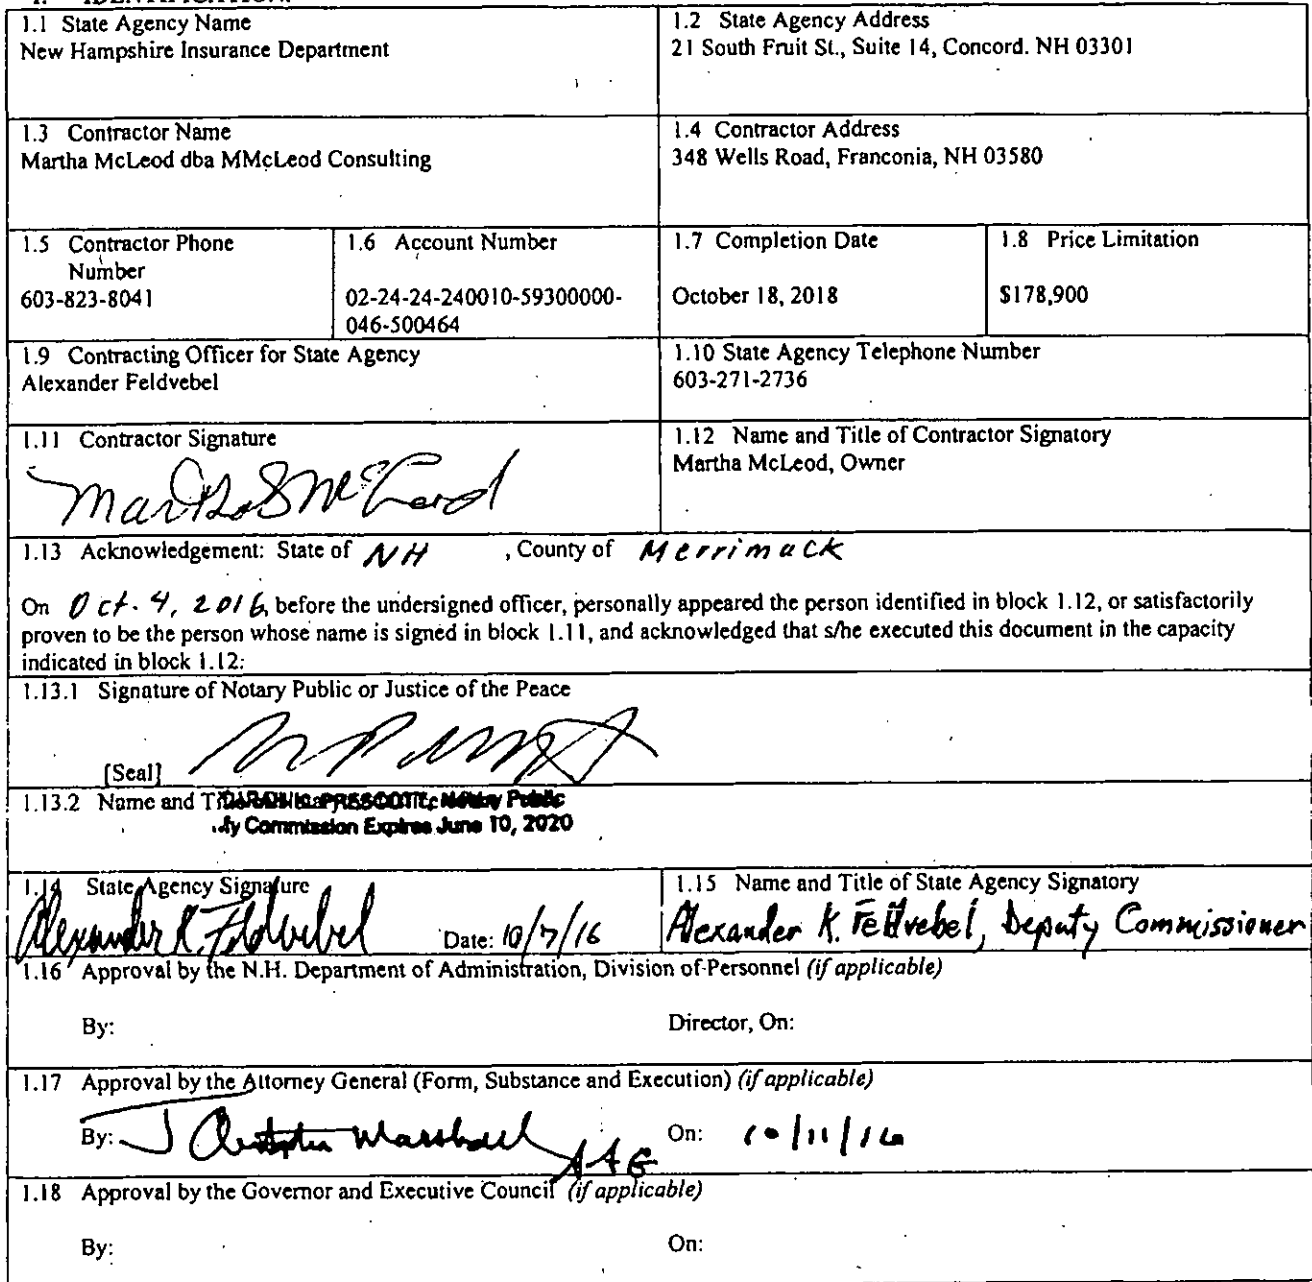 1. IDENTIFICATION.
1.1 State Agency Name
New Hampshire Insurance Department
1.2 State Agency Address
21 South Fruit St., Suite 14, Concord. NH 03301
1.3 Contractor Name
Martha McLeod dba MMcLeod Consulting
1.4 Contractor Address
348 Wells Road, Franconia, NH 03580
1.5 Contractor Phone
Number
603-823-8041
1.6 Account Number
02-24-24-240010-59300000-
046-500464
1.7 Completion Date
October 18, 2018
1.8 Price Limitation
$178,900
1.9 Contracting Officer for State Agency
Alexander Feldvebel
1.10 State Agency Telephone Number
603-271-2736
1.11 Contractor Signature
Martha S McLeod
1.12 Name and Title of Contractor Signatory
Martha McLeod, Owner
1.13 Acknowledgement: State of NH , County of Merrimack
On Oct. 4, 2016, before the undersigned officer, personally appeared the person identified in block 1.12, or satisfactorily
proven to be the person whose name is signed in block 1.11, and acknowledged that s/he executed this document in the capacity
indicated in block 1.12.
1.13.1 Signature of Notary Public or Justice of the Peace
[Seal]
1.13.2 Name and PRESCOTT, Notary Public
My Commission Expires June 10, 2020
1.14 State Agency Signature
Alexander K. Feldvebel Date: 10/7/16
1.15 Name and Title of State Agency Signatory
Alexander K. Feldvebel, Deputy Commissioner
1.16 Approval by the N.H. Department of Administration, Division of Personnel (if applicable)
By: Director, On:
1.17 Approval by the Attorney General (Form, Substance and Execution) (if applicable)
By: J Christopher Marshall AAG On: 10/11/16
1.18 Approval by the Governor and Executive Council (if applicable)
By: On: